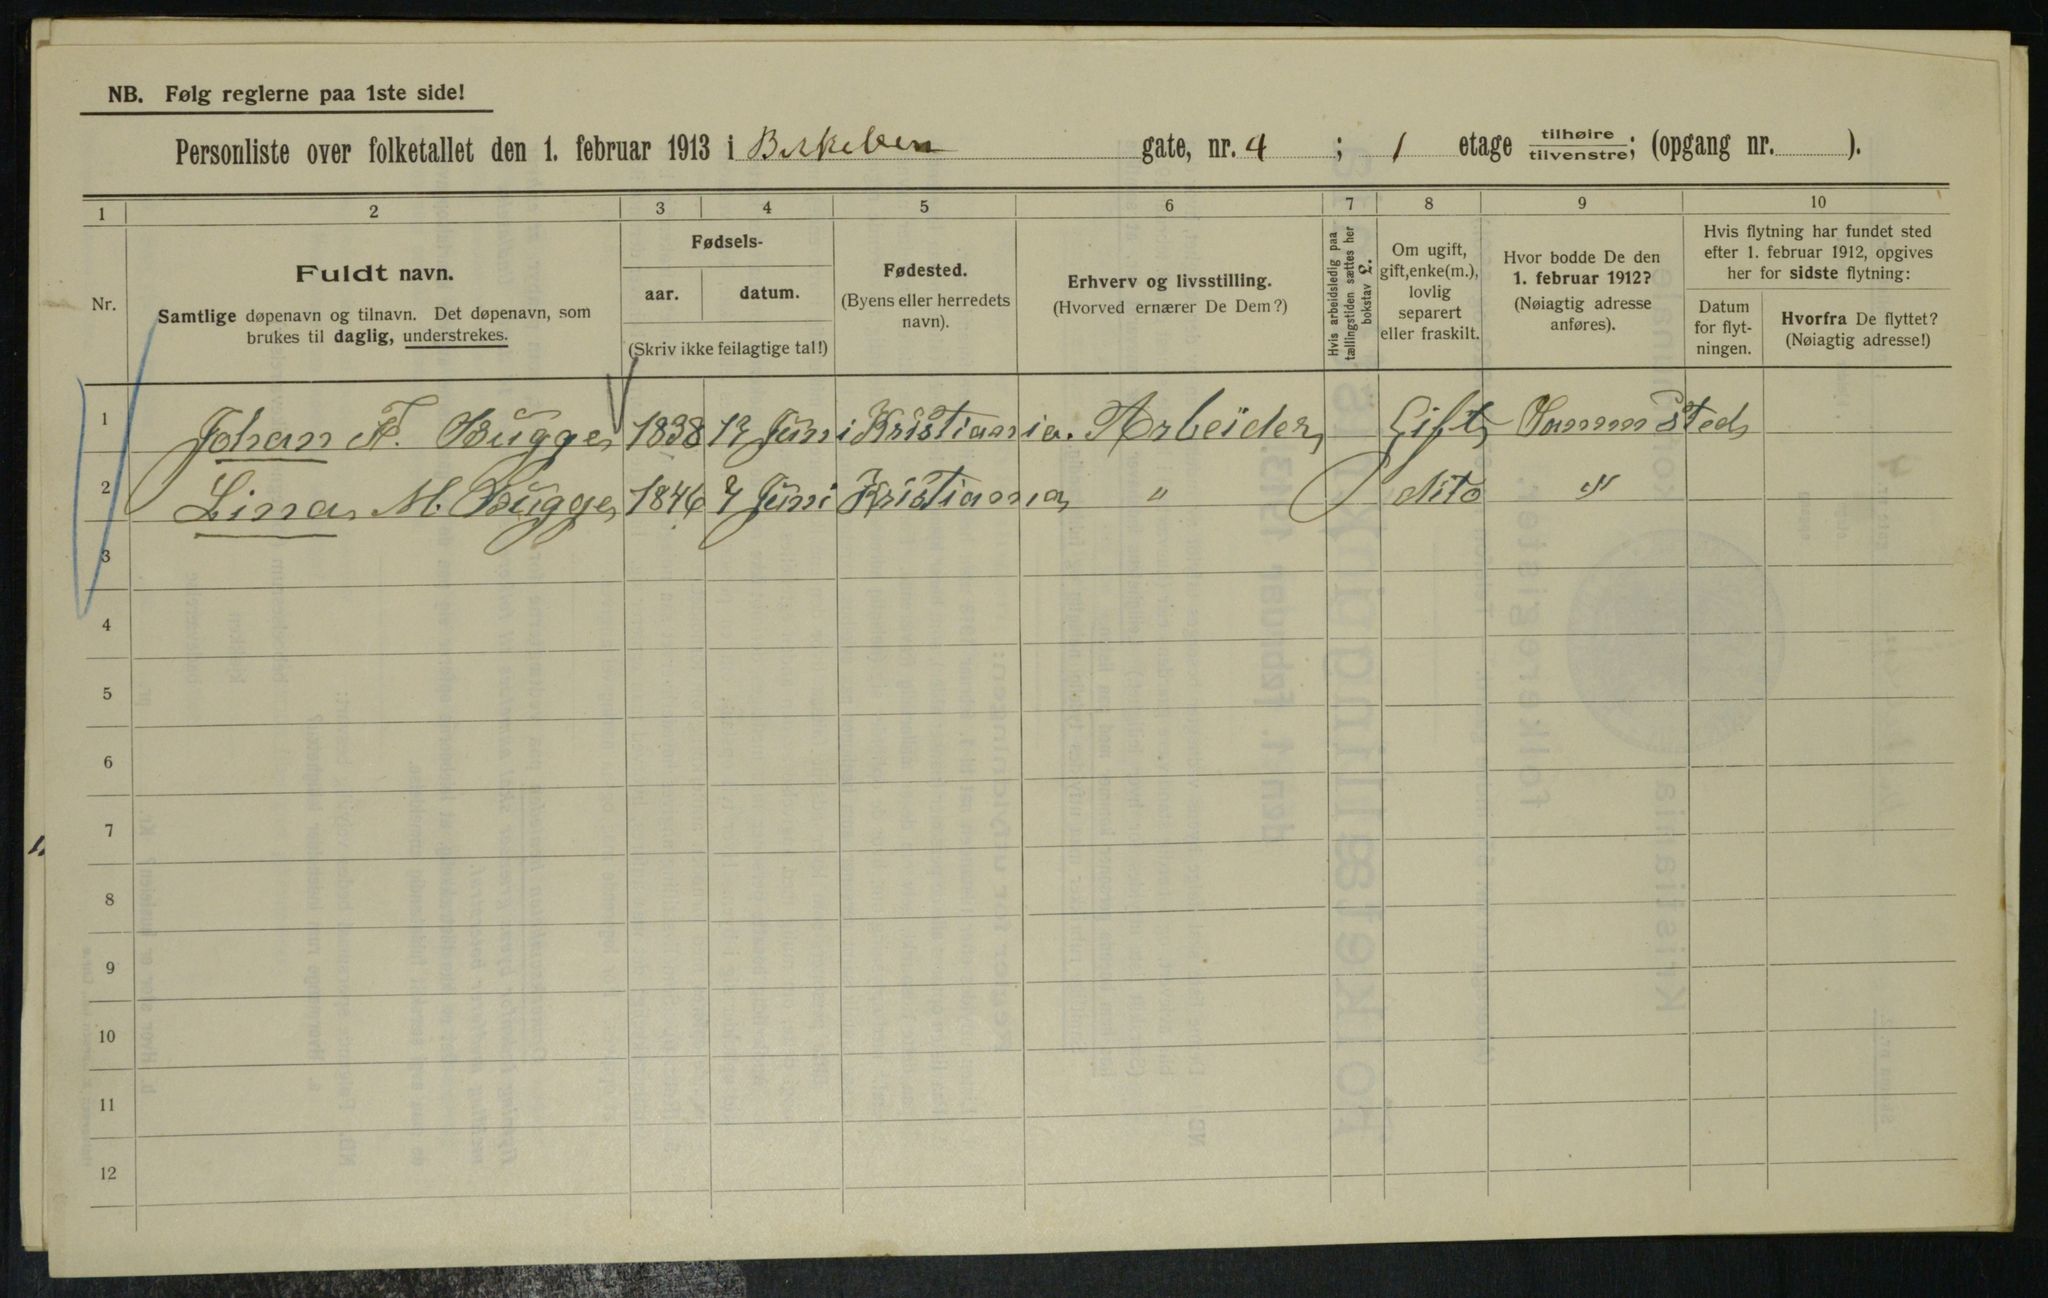 NB. Følg reglerne paa 1ste side!
Personliste over folketallet den 1. februar 1913 i Birkebein gate, nr. 4 ; 1 etage tilhøire tilvenstre; (opgang nr. ).
1 2 3 4 5 6 7 8 9 10
Nr.
Fuldt navn.
Samtlige døpenavn og tilnavn. Det døpenavn, som
brukes til daglig, understrekes.
Fødsels-
aar. datum.
(Skriv ikke feilagtige tal!)
Fødested.
(Byens eller herredets
navn).
Erhverv og livsstilling.
(Hvorved ernærer De Dem?)
Hvis arbeidsledig paa
tællingstiden sættes her
bokstav L.
Om ugift,
gift, enke(m.),
lovlig
separert
eller fraskilt.
Hvor bodde De den
1. februar 1912?
(Nøiagtig adresse
anføres).
Hvis flytning har fundet sted
efter 1. februar 1912, opgives
her for sidste flytning:
Datum
for flyt-
ningen.
Hvorfra De flyttet?
(Nøiagtig adresse!)
1 Johan F. Bugge 1838 12 Juni Kristiania. Arbeider Gift Samm Sted
2 Lina M. Bugge 1846 7 Juni Kristiania " dito "
3
4
5
6
7
8
9
10
11
12